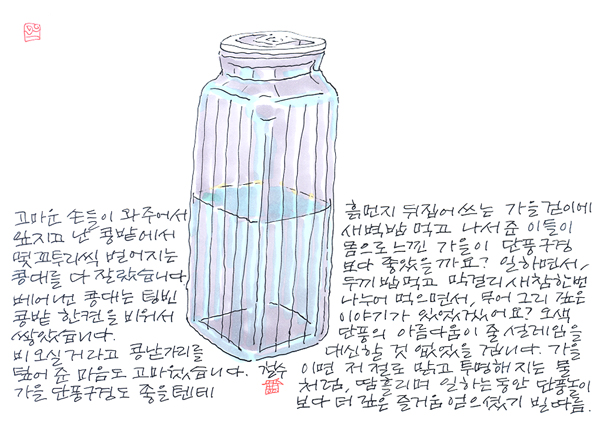 고마운 손들이 와 주어서
잎지고 난 콩밭에서
몇꼬투리씩 벌어지는
콩대를 다 잘랐습니다.
베어낸 콩대는 텅빈
콩밭 한켠을 비워서
쌓았습니다.
비 오실거라고 콩낟가리를
덮어 준 마음도 고마웠습니다.
가을 단풍구경도 좋을텐데
흙먼지 뒤집어 쓰는 가을걷이에
새벽밥 먹고 나서 준 이들이
몸으로 느낀 가을이 단풍구경
보다 좋았을까요? 일하면서,
두끼 밥먹고 막걸리 새참 한번
나누어 먹으면서, 무어 그리 깊은
이야기가 있었겠어요? 오색
단풍의 아름다움이 줄 설레임을
대신할 것 없었을 겁니다. 가을
이면 저절로 맑고 투명해지는 물
처럼, 땀흘리며 일하는동안 단풍놀이
보다 더 깊은 즐거움 얻으셨기 빌 따름.
철수